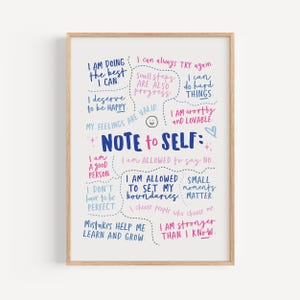 I AM DOING
the best
I CAN
I can always TRY again
small steps
ARE ALSO
progress
I can
do hard
THINGS
I deserve
to be HAPPY
I AM worthy
and LOVABLE
MY FEELINGS ARE VALID
NOTE to SELF:
I am
a good
PERSON
I am ALLOWED to say NO
I DON'T
have to be
PERFECT
I AM ALLOWED
TO SET MY
boundaries
SMALL
moments
MATTER
I choose people who choose me
Mistakes HELP ME
LEARN AND GROW
I AM stronger
THAN I KNOW